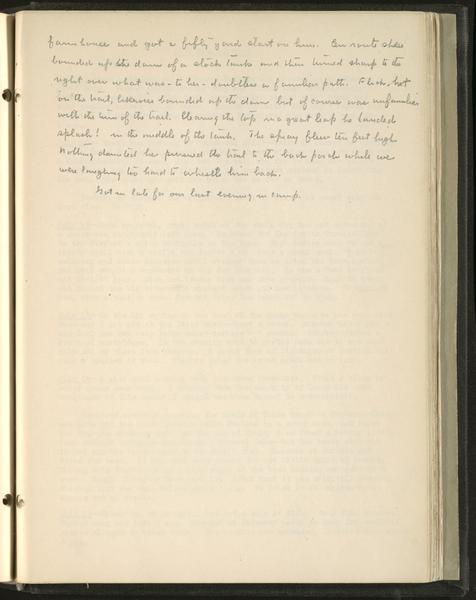 farmhouse and got a fifty yard start on him. En route she
bounded up the dam of a stock tank and then turned sharp to the
right over what was - to her - doubtless a familiar path. Flick, hot
on the trail, likewise bounded up the dam but of course was unfamiliar
with the turn of the trail. Clearing the top in a great leap he landed
splash! in the middle of the tank. The spray flew ten feet high.
Nothing daunted he pursued the trail to the back porch while we
were laughing too hard to whistle him back.
Got in late for our last evening in camp.